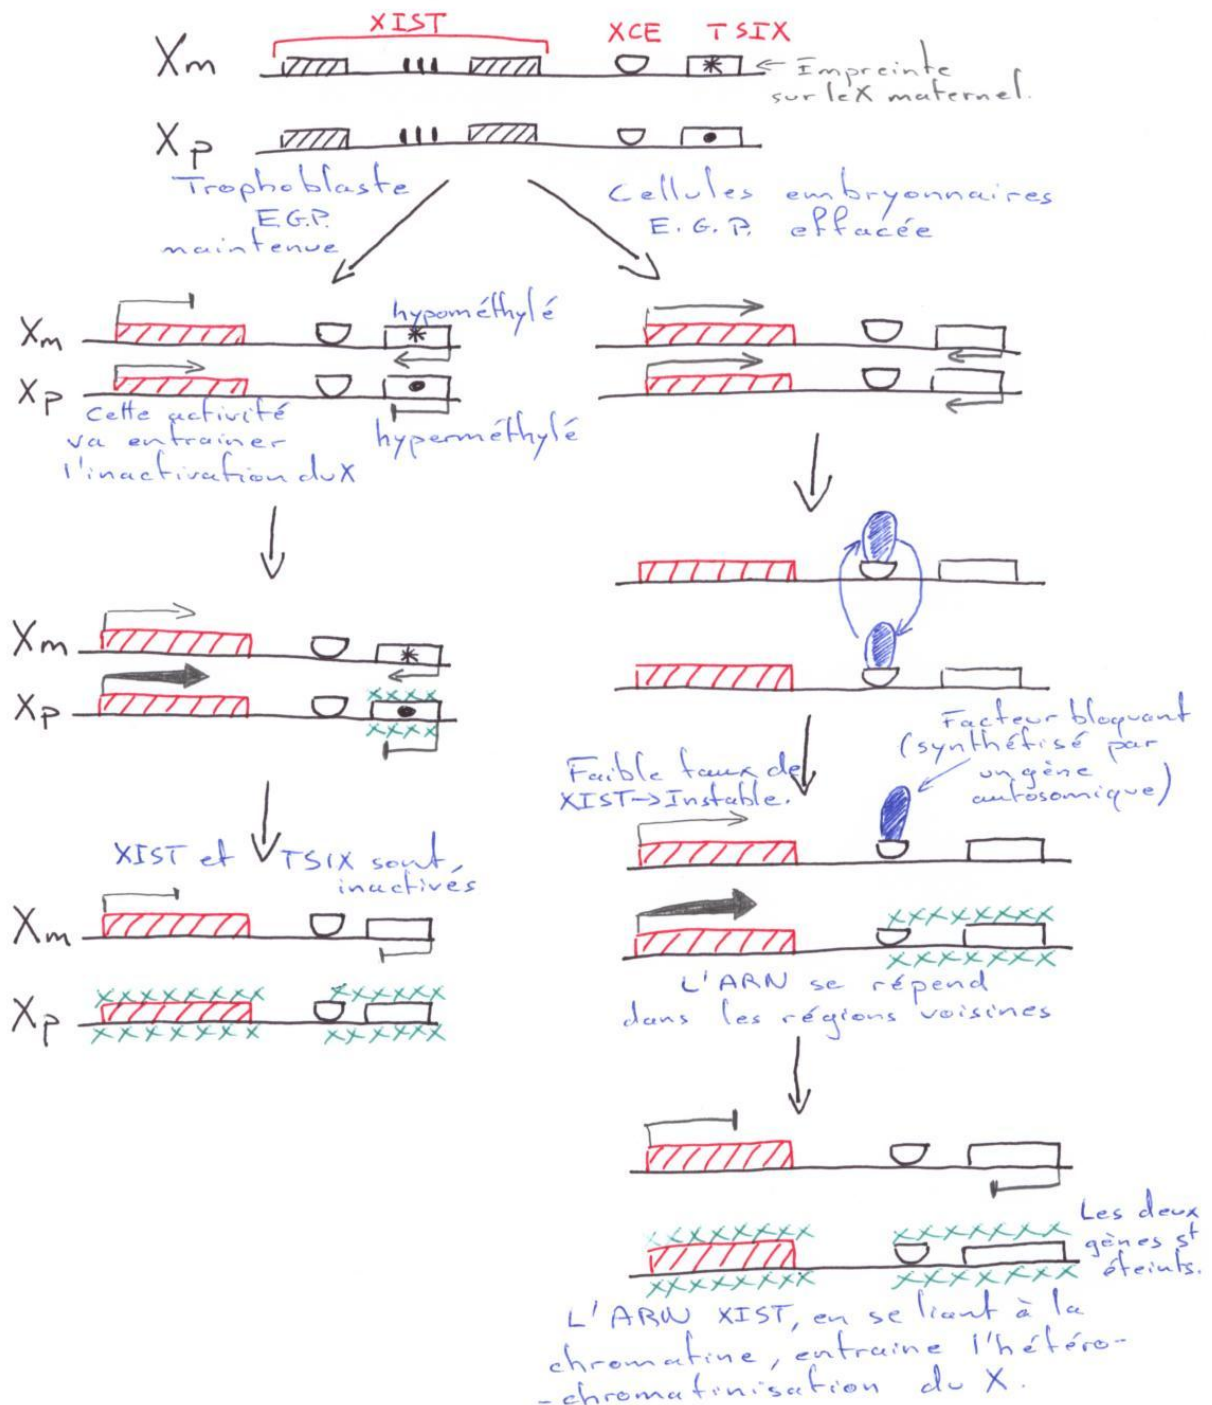 XIST XCE TSIX
Xm
* ← Empreinte
sur le X maternel.
Xp
Trophoblaste
E.G.P.
maintenue
Cellules embryonnaires
E.G.P. effacée
Xm
hypométhylé
*
Xp
hyperméthylé
Cette activité
va entrainer
l'inactivation du X
Xm
*
Xp
XIST et TSIX sont
inactivés
Xm
Xp
Facteur bloquant
(synthétisé par
un gène
autosomique)
Faible taux de
XIST → Instable.
L'ARN se répend
dans les régions voisines
Les deux
gènes st
éteints.
L'ARN XIST, en se liant à la
chromatine, entraine l'hétéro-
-chromatinisation du X.